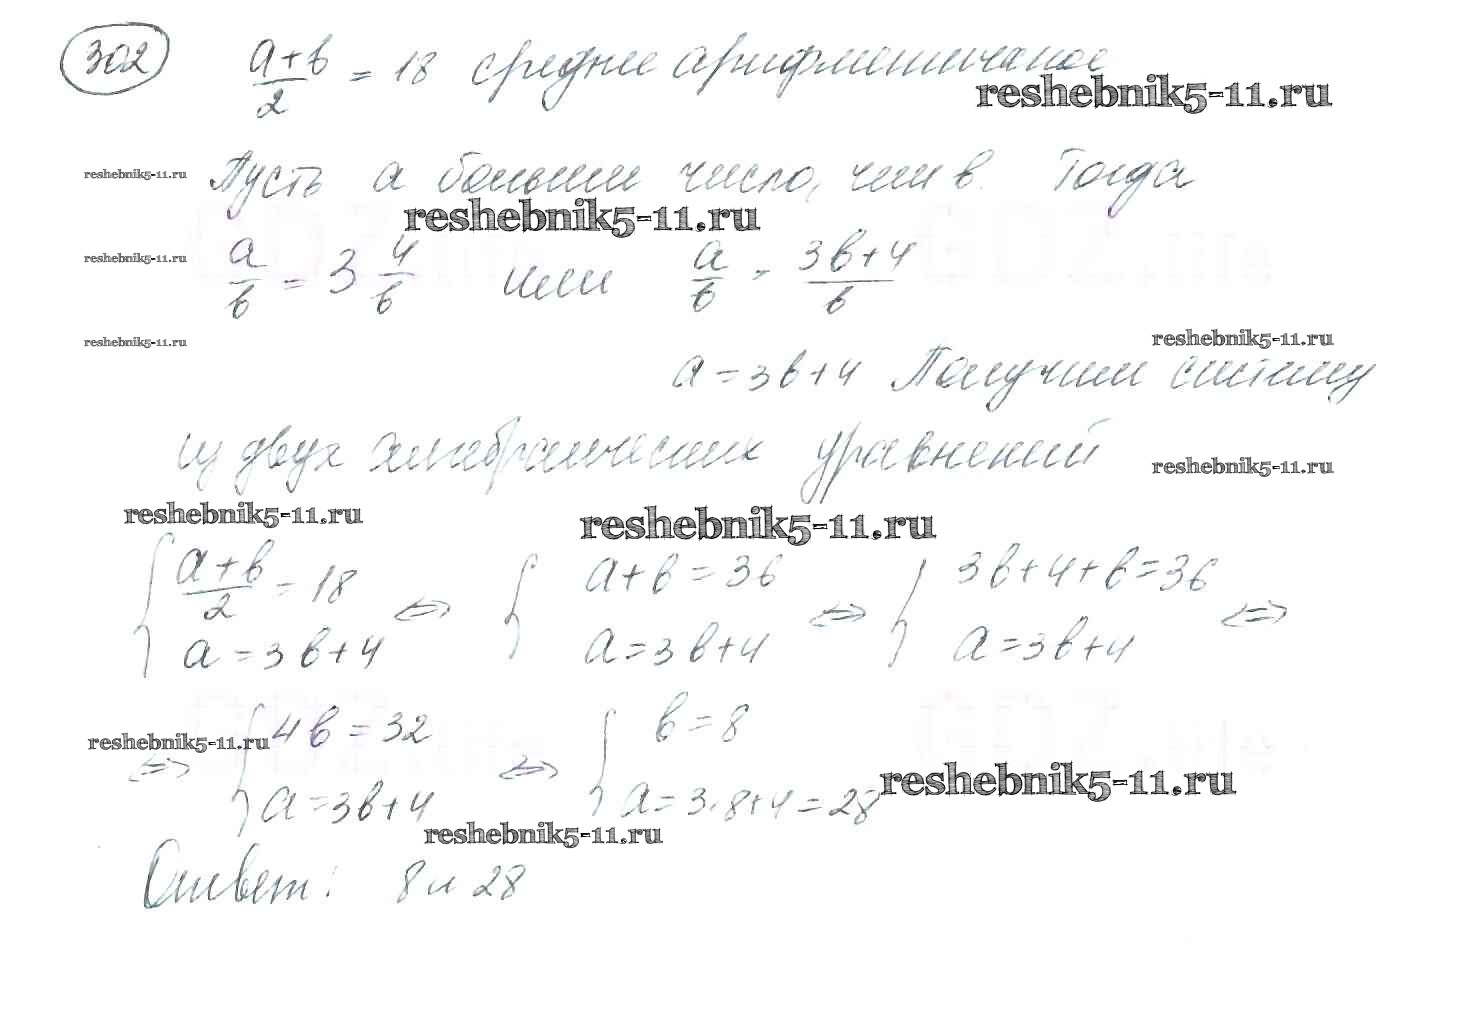 302 a+b/2 = 18 среднее арифметическое
reshebnik5-11.ru
reshebnik5-11.ru Пусть a больши число, чем b. Тогда
reshebnik5-11.ru
reshebnik5-11.ru a/b = 3 4/b или a/b = 3b+4/b
reshebnik5-11.ru reshebnik5-11.ru
a = 3b+4 Получим систему
из двух алгебраических уравнений
reshebnik5-11.ru
reshebnik5-11.ru reshebnik5-11.ru
{ a+b/2 = 18 ⇔ { a+b = 36 ⇔ { 3b+4+b = 36 ⇔
a = 3b+4 a = 3b+4 a = 3b+4
reshebnik5-11.ru
⇔ { 4b = 32 ⇔ { b = 8
a = 3b+4 a = 3·8+4 = 28
reshebnik5-11.ru
reshebnik5-11.ru
Ответ: 8 и 28